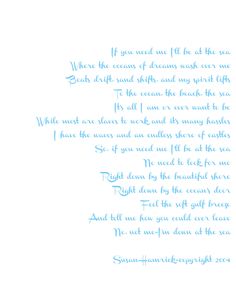 If you need me I'll be at the sea
Where the oceans of dreams wash over me
Boats drift, sand shifts, and my spirit lifts
To the ocean, the beach, the sea
It's all I am or ever want to be
While most are slaves to work and its many hassles
I have the waves and an endless shore of castles
So, if you need me I'll be at the sea
No need to look for me
Right down by the beautiful shore
Right down by the ocean's door
Feel the soft gulf breeze
And tell me how you could ever leave
No, not me-I'm down at the sea
Susan Hamrick-copyright 2004